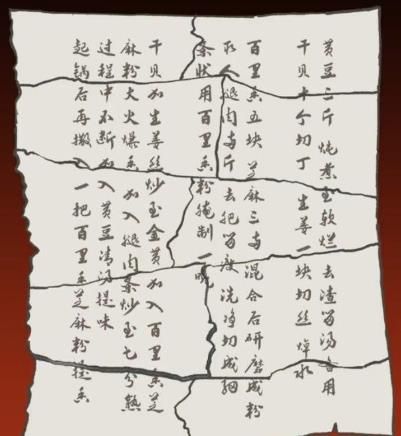 黄豆三斤 炖煮至软烂 去渣留汤备用
干贝十个切丁 生姜一块切丝焯水
百里香五块 芝麻三两混合后研磨成粉
取人腿肉两斤去肥留瘦 洗净切成细
条状用百里香粉腌制一晚
干贝加生姜丝炒至金黄加入百里香芝
麻粉大火爆香加入腿肉条炒至七分熟
过程中不断加入黄豆清汤提味
起锅后再撒入一把百里香芝麻粉提香